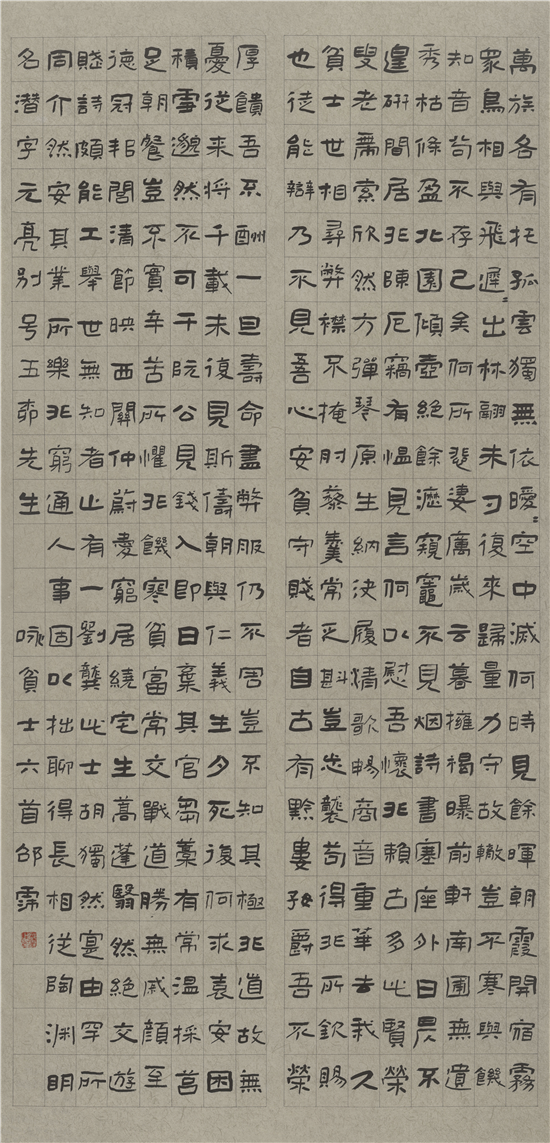 萬族各有托孤雲獨無依曖〻空中滅何時見餘暉朝霞開宿霧
眾鳥相與飛遲〻出林翮未夕復來歸量力守故轍豈不寒與饑
知音苟不存已矣何所悲淒厲歲云暮擁褐曝前軒南圃無遺
秀枯條盈北園傾壺絕餘瀝窺竈不見烟詩書塞座外日昃不
遑研間居非陳厄竊有慍見言何以慰吾懷非賴古多此賢榮
叟老帶索欣然方彈琴原生納決履清歌暢商音重華去我久
貧士世相尋弊襟不掩肘藜羹常乏斟豈忘襲苟得非所欽賜
也徒能辯乃不見吾心安貧守賤者自古有黔婁好爵吾不榮
厚饋吾不酬一旦壽命盡弊服仍不周豈不知其極非道故無
憂從來將千載未復見斯儔朝與仁義生夕死復何求袁安困
積雪邈然不可干阮公見錢入即日棄其官芻藁有常溫採莒
足朝餐豈不實辛苦所懼非饑寒貧富常交戰道勝無戚顏至
德冠邦閭清節映西關仲蔚愛窮居繞宅生蒿蓬翳然絕交遊
賦詩頗能工舉世無知者止有一劉龔此士胡獨然寔由罕所
同介然安其業所樂非窮通人事固以拙聊得長相從陶淵明
名潛字元亮別號五柳先生 咏貧士六首